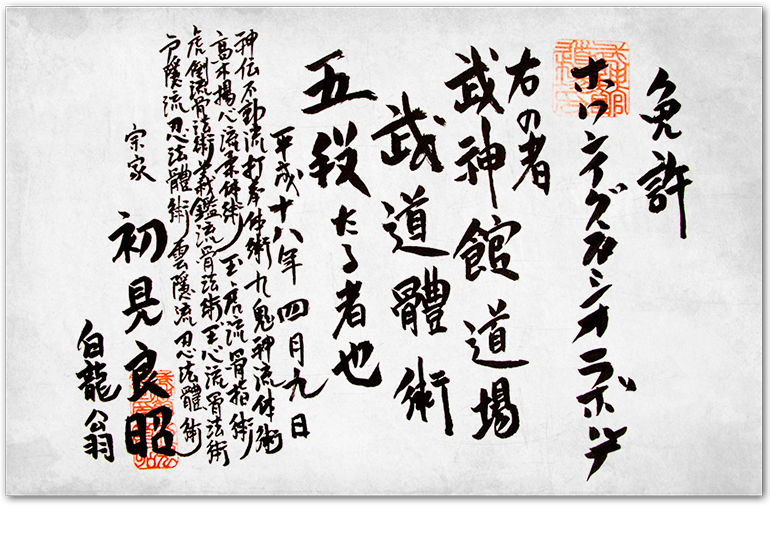 免許
ホワンイグナシオラボルデ
右の者
武神館道場
武道體術
五段たる者也
平成十八年四月九日
神伝不動流打拳体術九鬼神流体術
高木揚心流柔体術玉虎流骨指術
虎倒流骨法術義鑑流骨法術玉心流骨法術
戸隠流忍法體術雲隠流忍法體術
宗家
初見良昭
白龍翁